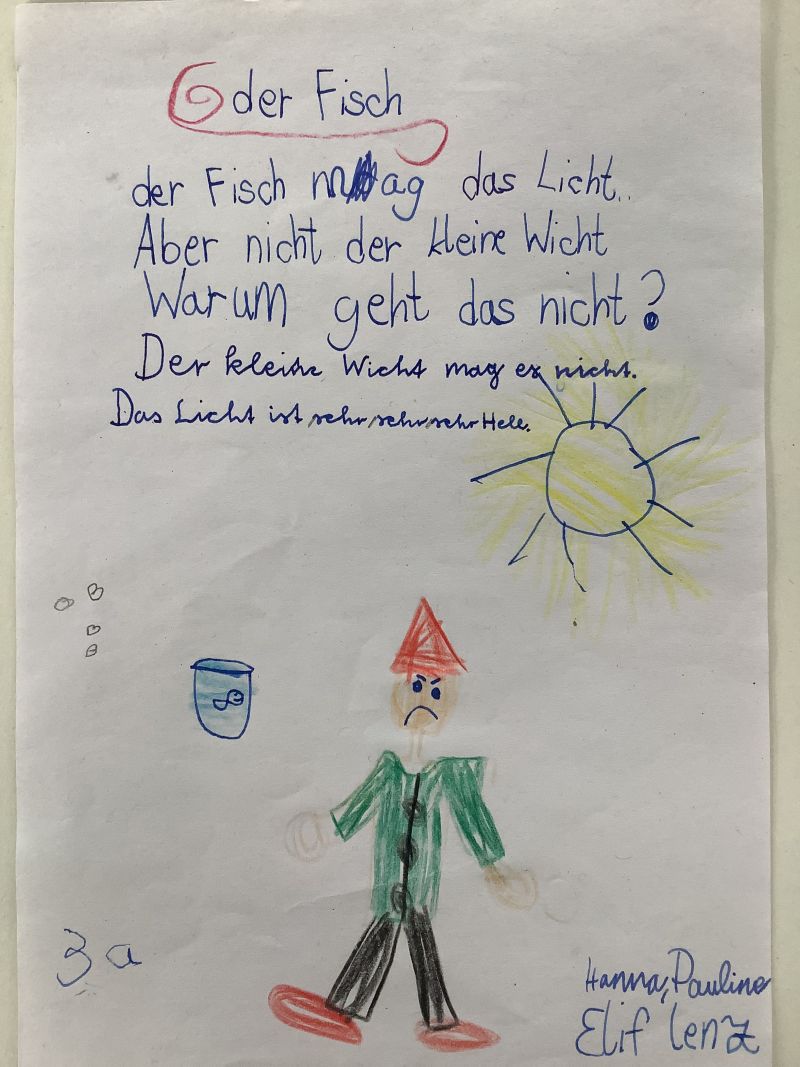 der Fisch
der Fisch mag das Licht..
Aber nicht der kleine Wicht
Warum geht das nicht?
Der kleine Wicht mag es nicht.
Das Licht ist sehr, sehr, sehr Hell.
3a
Hanna, Pauline
Elif Lenz